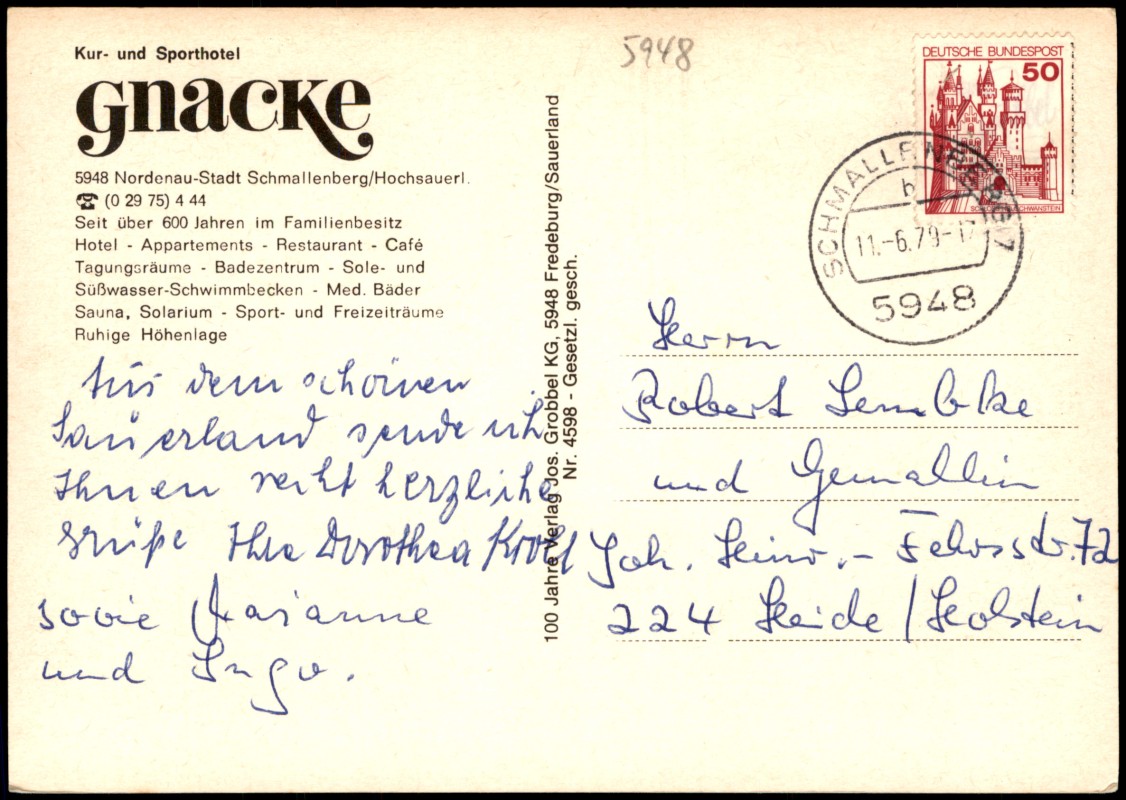 Kur- und Sporthotel
Gnacke
5948 Nordenau-Stadt Schmallenberg/Hochsauerl.
☎ (0 29 75) 4 44
Seit über 600 Jahren im Familienbesitz
Hotel - Appartements - Restaurant - Café
Tagungsräume - Badezentrum - Sole- und
Süßwasser-Schwimmbecken - Med. Bäder
Sauna, Solarium - Sport- und Freizeiträume
Ruhige Höhenlage
Aus dem schönen
Sauerland sende ich
Ihnen recht herzliche
Grüße Ihre Dorothea
sowie Marianne
und Ingo.
100 Jahre Verlag Jos. Grobbel KG, 5948 Fredeburg/Sauerland
Nr. 4598 - Gesetzl. gesch.
5948
DEUTSCHE BUNDESPOST
50
SCHMALLENBERG 7
b
11.-6.79-17
5948
Herrn
Robert Lembke
und Gemahlin
Joh. Hinr.- Fehrsstr. 72
224 Heide/Holstein